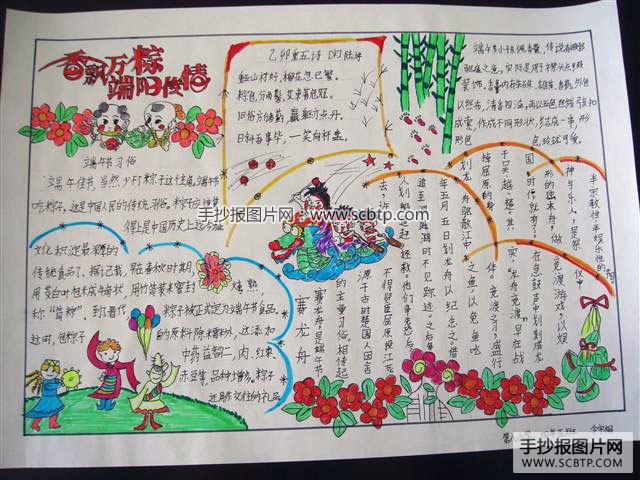 香飘万粽
端阳俊情
端午节习俗
端午佳节,当然少不了粽子这住肴,端午节
吃粽子,这是中国人民的传统习俗。粽子
得上是中国历史上迄今为止
文化积淀最
传统食品了。据记载,早在春秋时期,
用菰叶包
称"角黍",到晋代,
粽子被正式定为端午节食品。
的原料除糯粉外,还添加
中药益智仁,肉,红枣,
赤豆等,品种增多,粽子
还用作交往的礼品
乙卯重五诗
重五山村好,榴花忽已繁。
粽包分两髻,艾束著危冠。
旧俗方储药,羸躯亦点丹。
日斜吾事毕,一笑向杯盘。
端午节小孩佩香囊,传说有
驱瘟之意,实际是用于襟头点缀
装饰。香囊内有朱砂、雄黄、香药,外包
以丝布,清香四溢,再以五色丝线弦扣
成索,作成不同形状,结成一串,形形
色色,玲珑可爱。
赛龙舟
赛龙舟,是端午节
的主要习俗。相传起
源于古时楚国人因舍
不得贤臣屈原投江死
去,许
人划船追赶拯救。他们争先恐后,
追至洞庭湖时不见踪迹。之后每
年五月五日划龙舟以纪念之。借
划龙舟驱散江中之鱼,以免鱼吃
掉屈原的身体。竞渡之习,盛行
于吴、越、楚。其实,"龙舟竞渡"早在战
国时代就有了。在急鼓声中划刻成龙
形的独木舟,做竞渡游戏,以娱
神与乐人,是祭仪中
半宗教性、半娱乐性的
手抄报图片网 - www.scbtp.com
手抄报图片网
WWW.SCBTP.COM